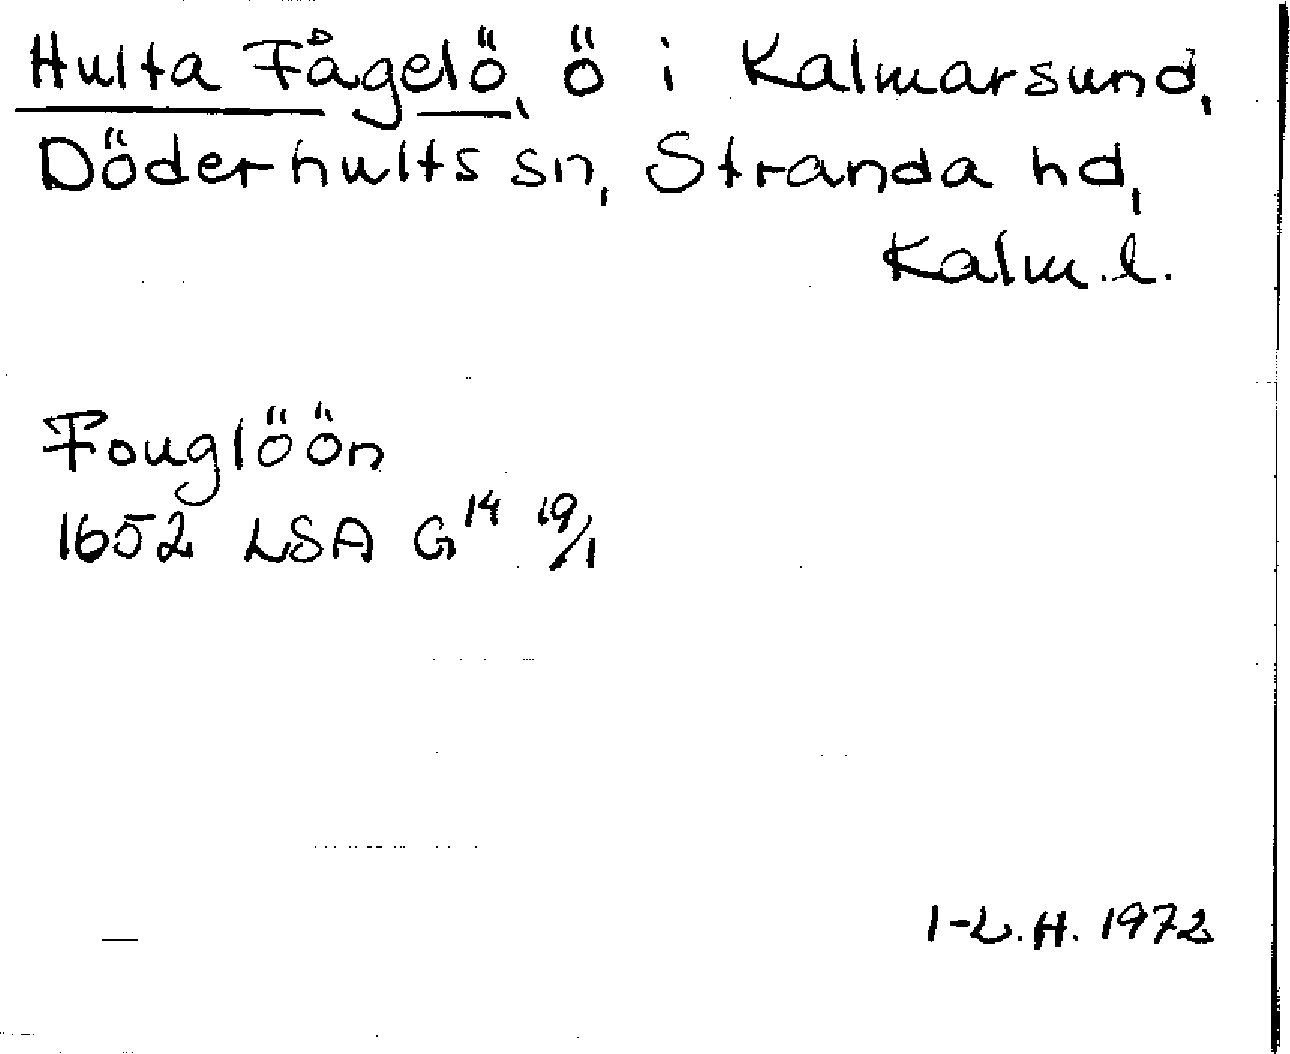 Hulta Fågelö, ö i Kalmarsund,
Döderhults sn, Stranda hd,
Kalm. l.
Fouglöön
1652 LSA G14 19/1
I-L.H. 1972